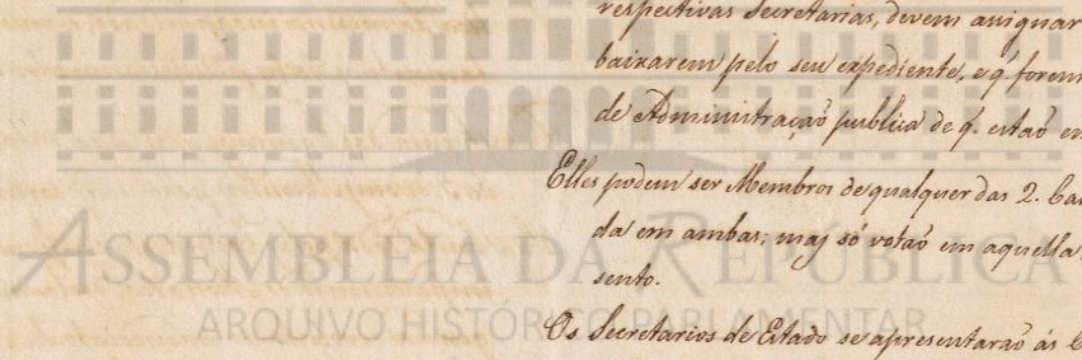 respectivas Secretarias, devem assignar
baixarem pelo seu expediente, e q. forem
de Administração publica de q. estaõ en
Elles podem ser Membros de qualquer das 2. Ca
da em ambas; mas só votaõ em aquella
sento.
Os Secretarios de Estado se apresentaraõ ás C
ASSEMBLEIA DA REPÚBLICA
ARQUIVO HISTÓRICO PARLAMENTAR